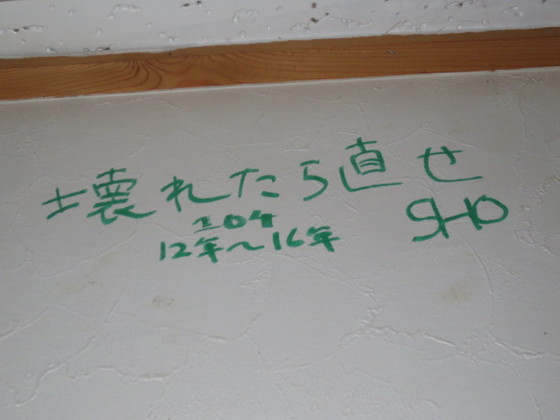 壊れたら直せ
204
12年〜16年
SHO